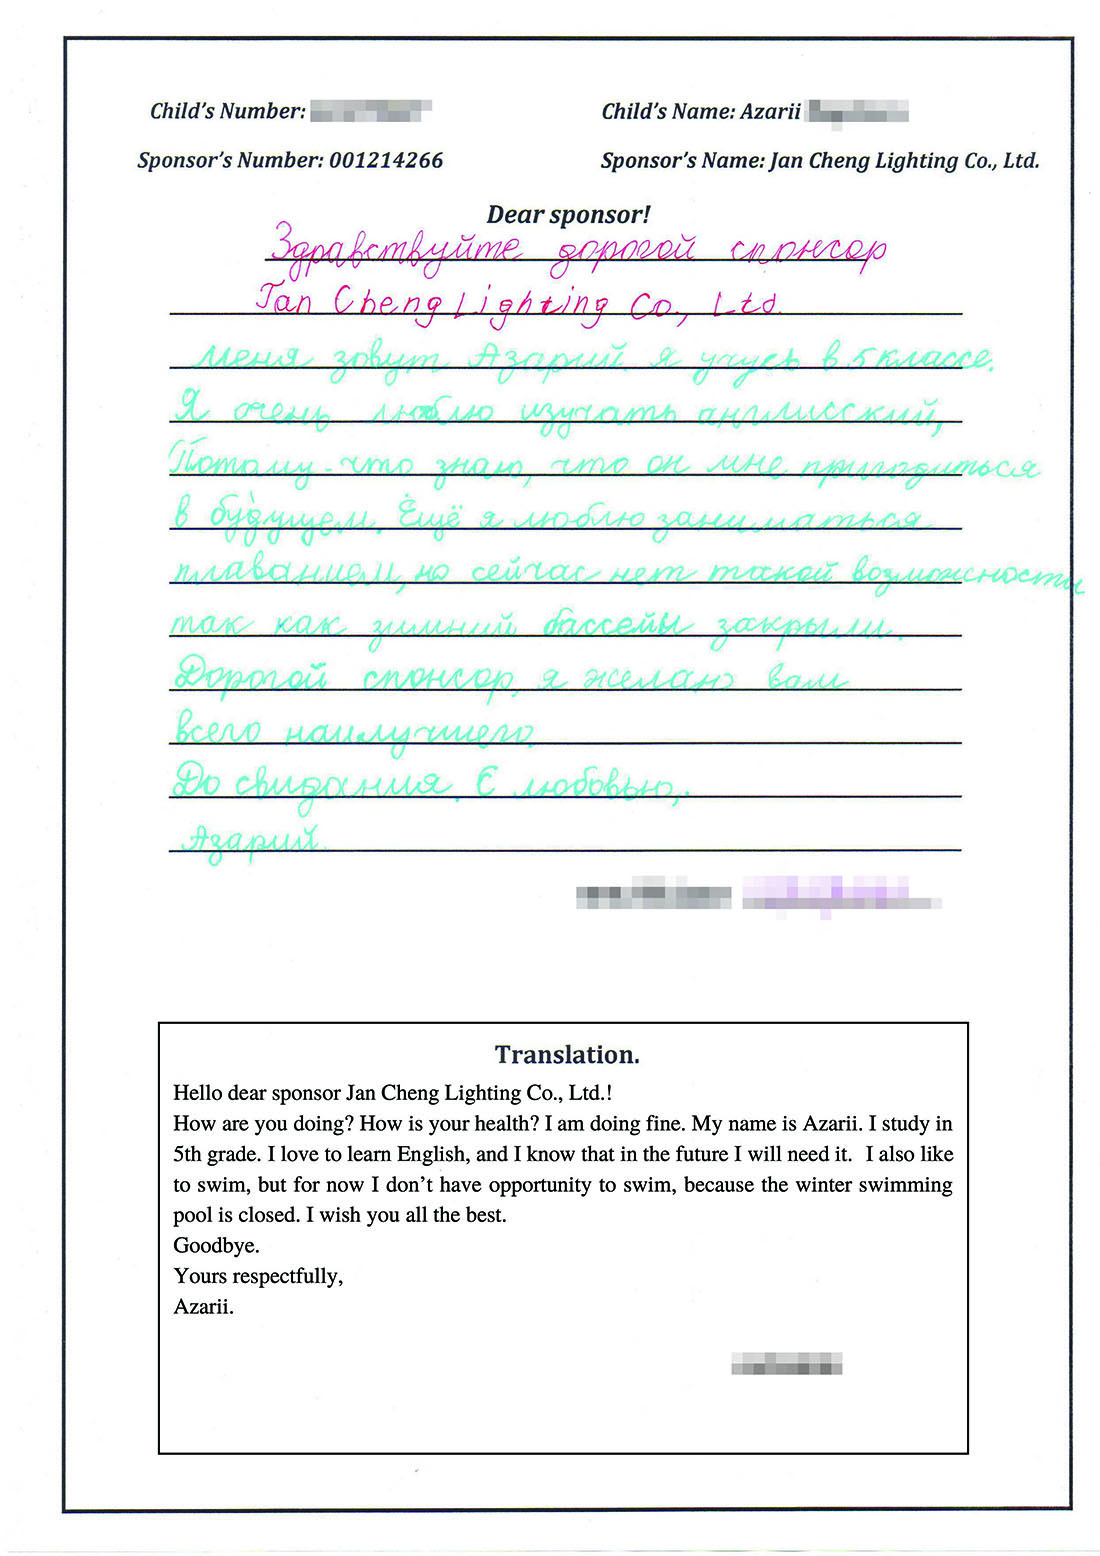 Child's Number:
Child's Name: Azarii
Sponsor's Number: 001214266
Sponsor's Name: Jan Cheng Lighting Co., Ltd.
Dear sponsor!
Здравствуйте дорогой спонсор
Jan Cheng Lighting Co., Ltd.
Меня зовут Азарий. я учусь в 5 классе.
Я очень люблю изучать англисский,
Потому-что знаю, что он мне пригодиться
в будущем. Ещё я люблю заниматься
плаванием, но сейчас нет такой возможности
так как зимний бассейн закрыли.
Дорогой спонсор, я желаю вам
всего наилучшего.
До свидания. С любовью,
Азарий.
Translation.
Hello dear sponsor Jan Cheng Lighting Co., Ltd.!
How are you doing? How is your health? I am doing fine. My name is Azarii. I study in
5th grade. I love to learn English, and I know that in the future I will need it. I also like
to swim, but for now I don't have opportunity to swim, because the winter swimming
pool is closed. I wish you all the best.
Goodbye.
Yours respectfully,
Azarii.